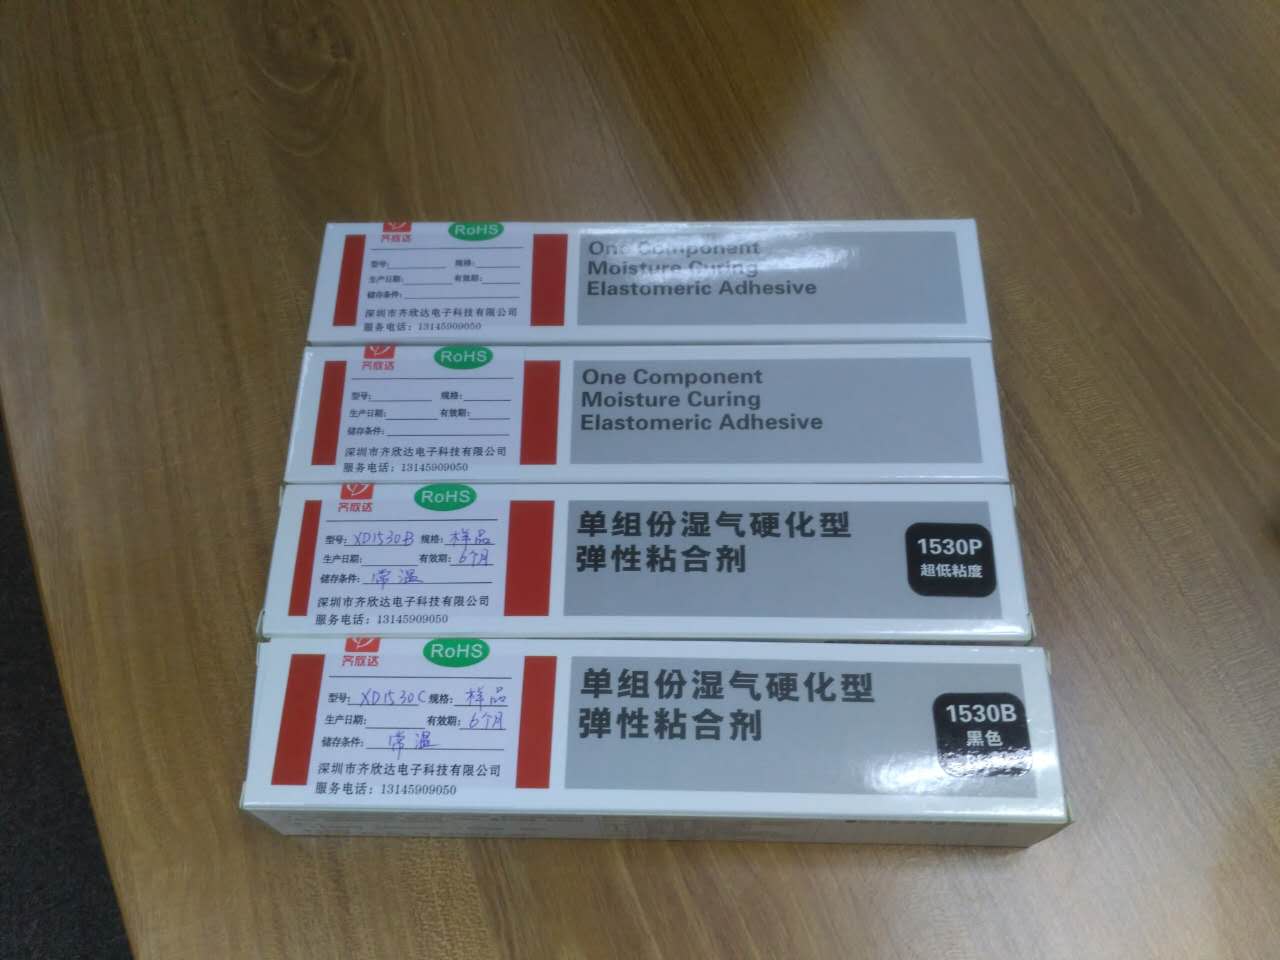 齐欣达
RoHS
型号: 规格:
生产日期: 有效期:
储存条件:
深圳市齐欣达电子科技有限公司
服务电话: 13145909050
One Component
Moisture Curing
Elastomeric Adhesive
齐欣达
RoHS
型号: 规格:
生产日期: 有效期:
储存条件:
深圳市齐欣达电子科技有限公司
服务电话: 13145909050
One Component
Moisture Curing
Elastomeric Adhesive
齐欣达
RoHS
型号: XD1530B 规格: 样品
生产日期: 有效期: 6个月
储存条件: 常温
深圳市齐欣达电子科技有限公司
服务电话: 13145909050
单组份湿气硬化型
弹性粘合剂
1530P
超低粘度
齐欣达
RoHS
型号: XD1530C 规格: 样品
生产日期: 有效期: 6个月
储存条件: 常温
深圳市齐欣达电子科技有限公司
服务电话: 13145909050
单组份湿气硬化型
弹性粘合剂
1530B
黑色